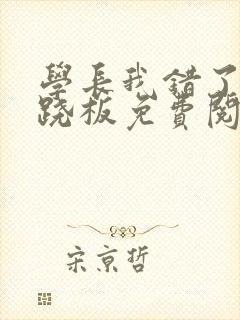 學長我錯了
跷板免費閱
宋京哲